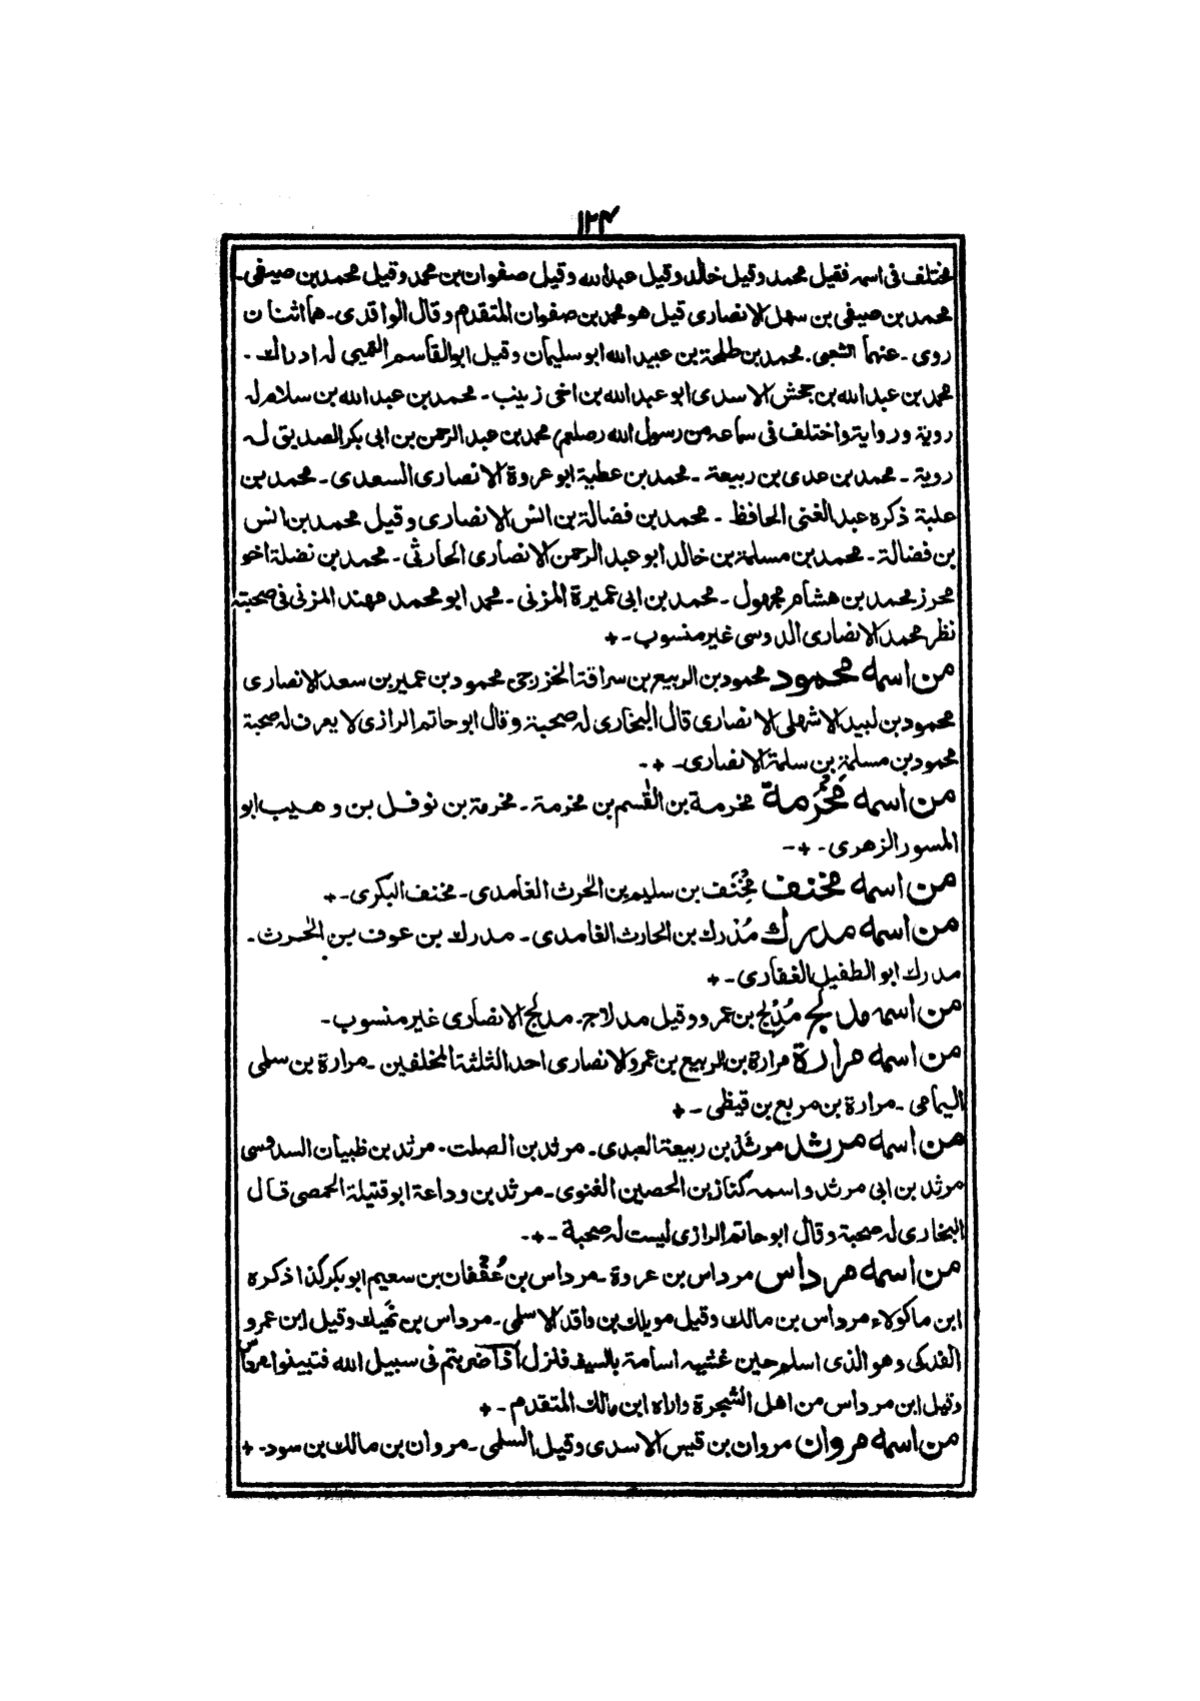 ١٢٤
مختلف فى اسمه فقيل محمد وقيل خالد وقيل عبدالله وقيل صفوان بن محمد وقيل محمد بن صيفى-
محمد بن صيفى بن سهل الانصارى قيل هو محمد بن صفوان المتقدم وقال الواقدى- هما اثنان
روى- عنهما الشعبى- محمد بن طلحة بن عبيد الله ابو سليمان وقيل ابوالقاسم التميمى له ادراك-
محمد بن عبدالله بن جحش الاسدى ابو عبدالله بن اخى زينب- محمد بن عبدالله بن سلام له
روية ورواية واختلف فى سماعه من رسول الله (صلعم) محمد بن عبدالرحمن بن ابى بكر الصديق له
روية- محمد بن عدى بن ربيعة- محمد بن عطية ابو عروة الانصارى السعدى- محمد بن
علبة ذكره عبدالغنى الحافظ- محمد بن فضالة بن انس الانصارى وقيل محمد بن انس
بن فضالة- محمد بن مسلمة بن خالد ابو عبدالرحمن الانصارى الحارثى- محمد بن نضلة اخو
محرز محمد بن هشام مجهول- محمد بن ابى عميرة المزنى- محمد ابو محمد مهند المزنى فى صحبته
نظر محمد الانصارى الدوسى غير منسوب-+
من اسمه محمود محمود بن الربيع بن سراقة الخزرجى محمود بن عمير بن سعد الانصارى
محمود بن لبيد الاشهلى الانصارى قال البخارى له صحبة وقال ابو حاتم الرازى لا يعرف له صحبة
محمود بن مسلمة بن سلمة الانصارى-+-
من اسمه مَخْرَمة مخرمة بن القٰسم بن مخرمة- مخرمة بن نوفل بن وهيب ابو
المسور الزهرى-+-
من اسمه مخنف مِخْنَف بن سليم بن الحٰرث الغامدى- مخنف البكرى-+
من اسمه مدرك مُدرك بن الحارث الغامدى- مدرك بن عوف بن الحٰرث-
مدرك ابو الطفيل الغفارى-+
من اسمه مدلج مُدْلِج بن عمرو وقيل مدلاج- مدلج الانصارى غير منسوب-
من اسمه مرارة مرارة بن الربيع بن عمرو الانصارى احد الثلثة المخلفين- مرارة بن سلمى
اليمامى- مرارة بن مربع بن قيظى-+
من اسمه مرثد مرثد بن ربيعة العبدى- مرثد بن الصلت- مرثد بن ظبيان السدوسى
مرثد بن ابى مرثد واسمه كناز بن الحصين الغنوى- مرثد بن وداعة ابو قتيلة الحمصى قال
البخارى له صحبة وقال ابو حاتم الرازى ليست له صحبة-+-
من اسمه مرداس مرداس بن عروة- مرداس بن عُقْفان بن سعيم ابو بكر كذا ذكره
ابن ماكولاء مرداس بن مالك وقيل مويلك بن واقد الاسلمى- مرداس بن نَهيك وقيل ابن عمرو
الفدكى وهو الذى اسلم حين غشيه اسامة بالسيف فنزل اذا ضربتم فى سبيل الله فتبينوا مرداس
وقيل ابن مرداس من اهل الشجرة واراه ابن مالك المتقدم-+
من اسمه مروان مروان بن قيس الاسدى وقيل السلمى- مروان بن مالك بن سود-+